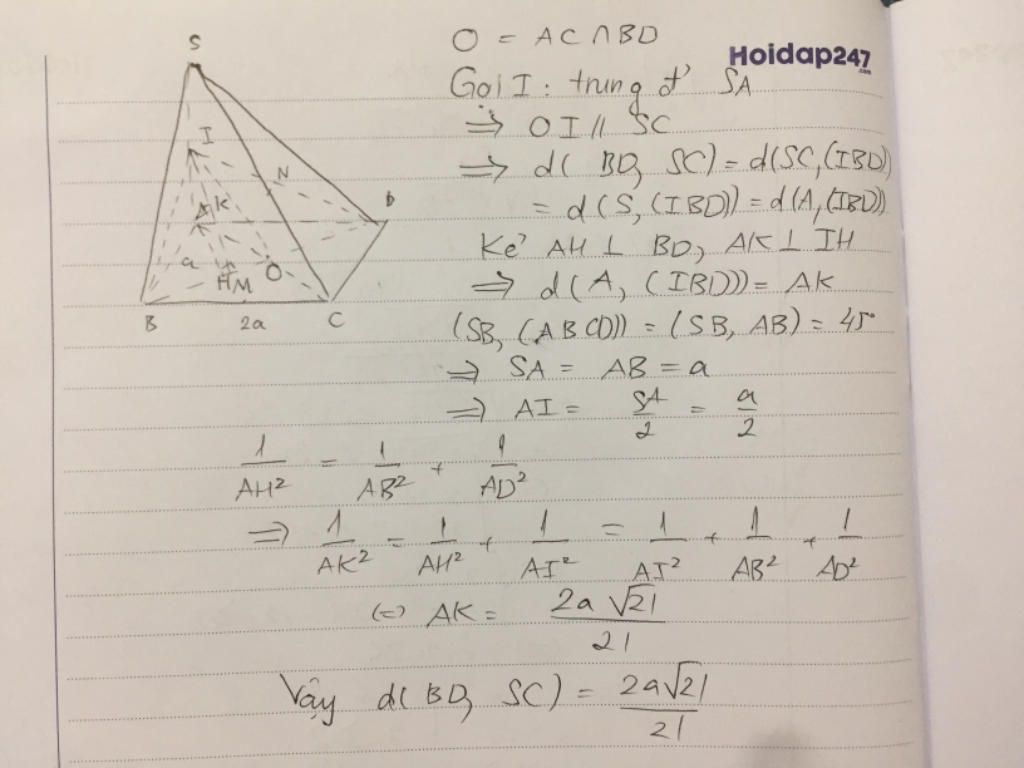 O = AC ∩ BD
Hoidap247
.com
Gọi I : trung đ' SA
⇒ OI // SC
⇒ d( BD, SC) = d(SC, (IBD)
= d(S, (IBD)) = d(A, (IBD))
Kẻ AH ⊥ BD, AK ⊥ IH
⇒ d(A, (IBD))) = AK
(SB, (ABCD)) = (SB, AB) = 45°
⇒ SA = AB = a
⇒ AI = SA/2 = a/2
S
I
N
D
A K
a
H M O
B 2a C
1/AH² = 1/AB² + 1/AD²
⇒ 1/AK² = 1/AH² + 1/AI² = 1/AI² + 1/AB² + 1/AD²
(=) AK = 2a√21/21
Vậy d(BD, SC) = 2a√21/21